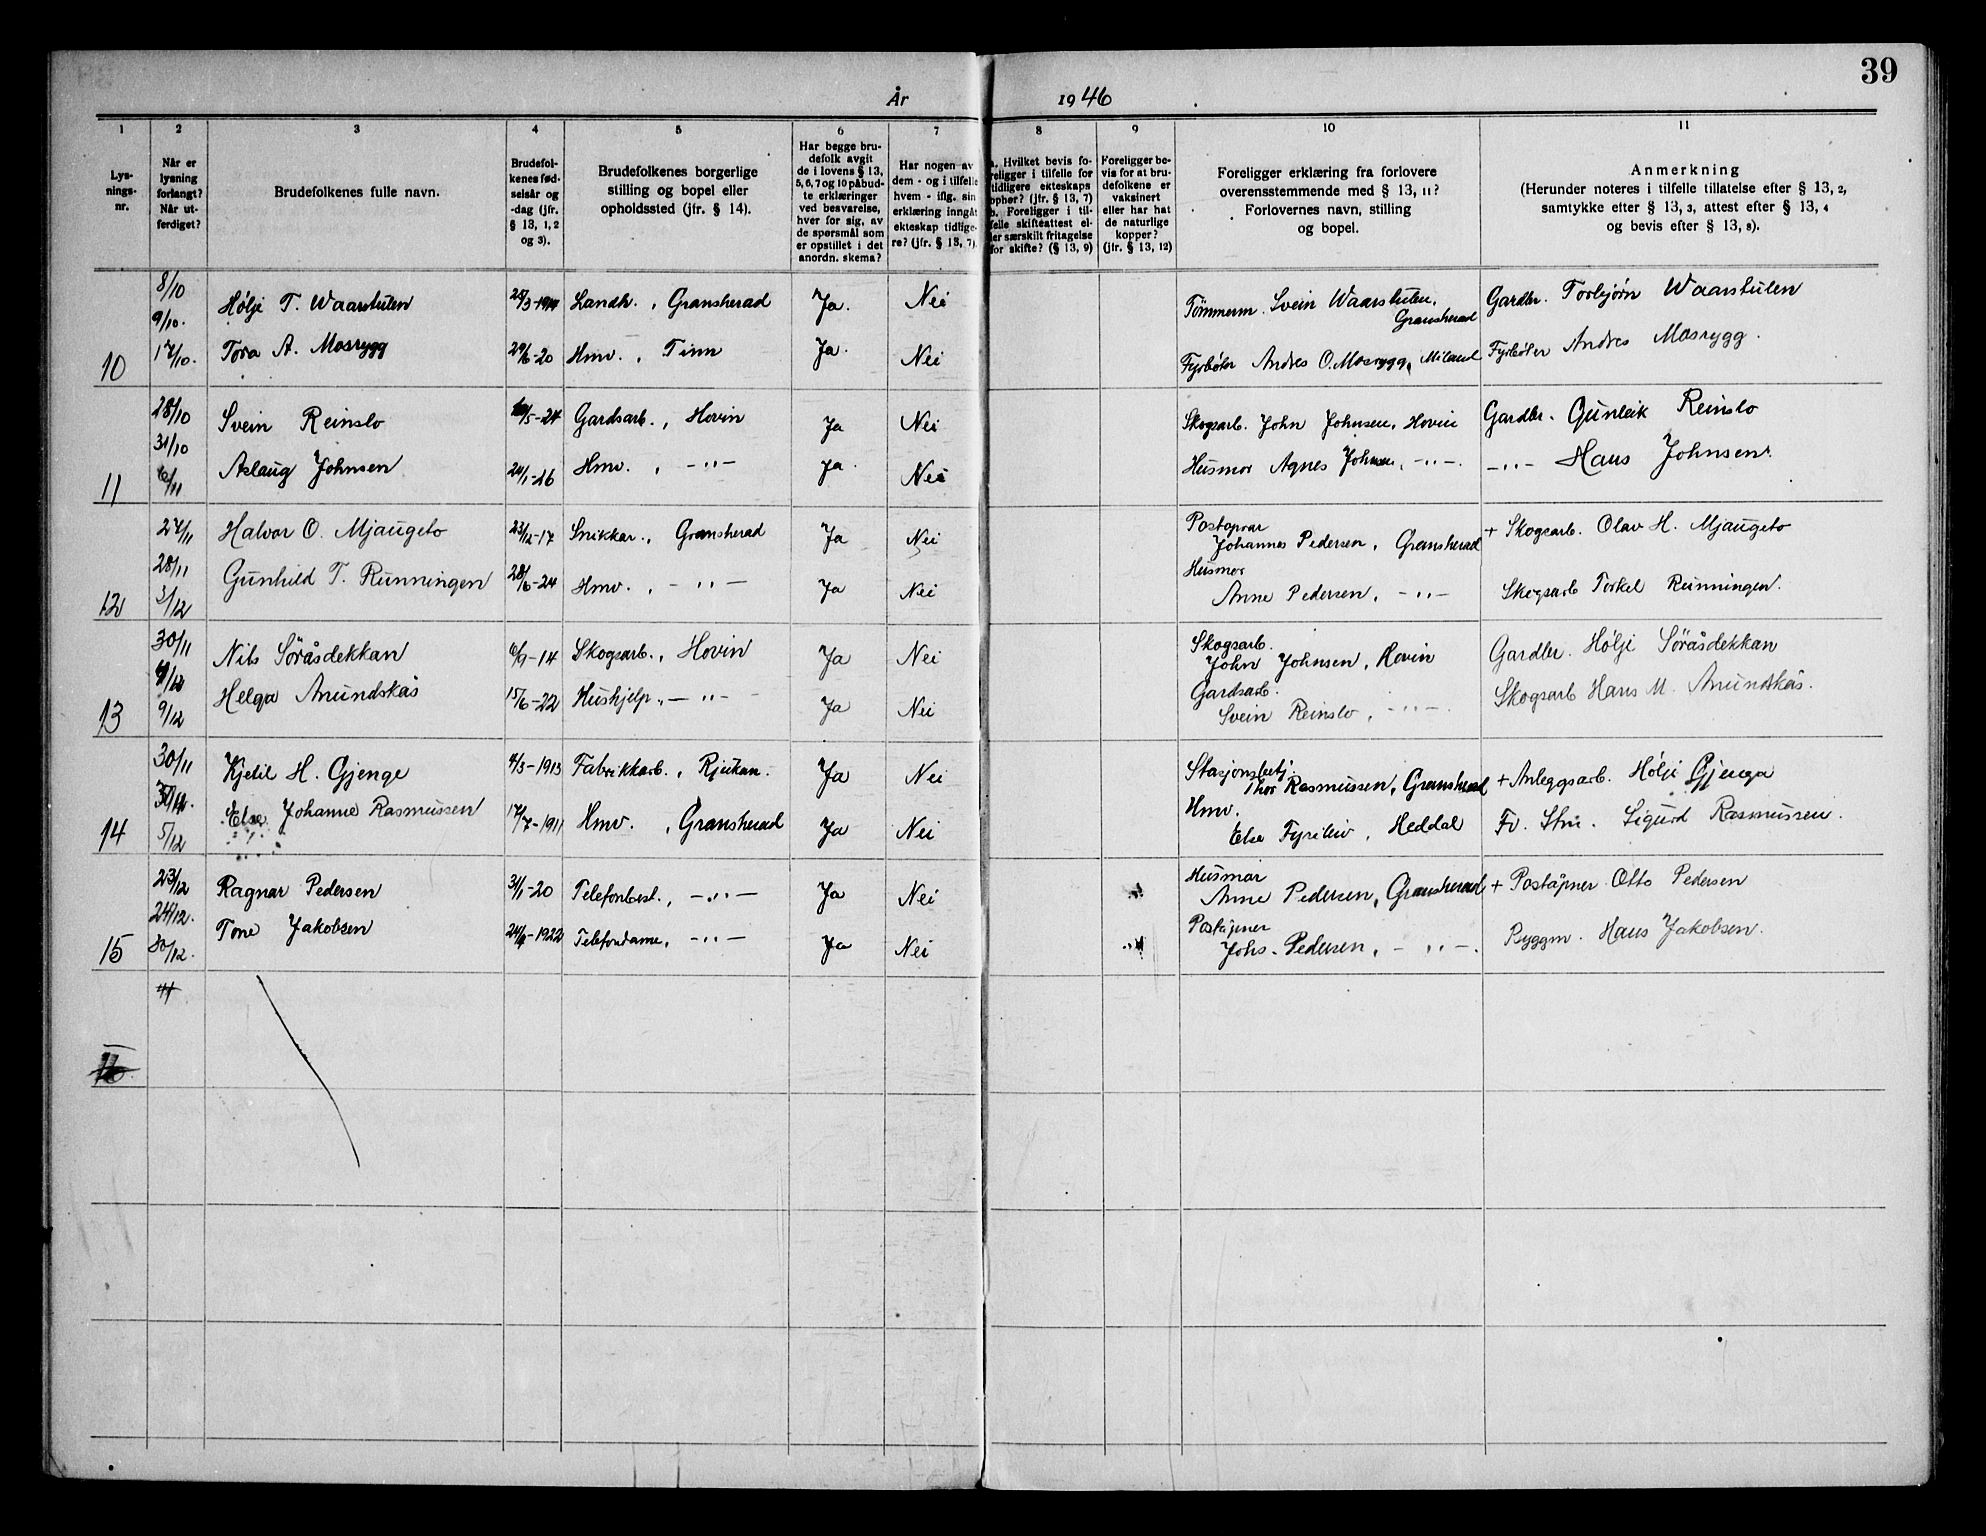 39
År 1946
1 2 3 4 5 6 7 8 9 10 11
Lys-
nings-
nr.
Når er
lysning
forlangt?
Når ut-
ferdiget?
Brudefolkenes fulle navn.
Brudefol-
kenes fød-
selsår og
-dag (jfr.
§ 13, 1, 2
og 3).
Brudefolkenes borgerlige
stilling og bopel eller
opholdssted (jfr. § 14).
Har begge bru-
defolk avgit
de i lovens § 13,
5, 6, 7 og 10 påbud-
te erklæringer
ved besvarelse,
hver for sig, av
de spørsmål som
er opstillet i det
anordn. skema?
Har nogen av
dem - og i tilfelle
hvem - iflg. sin
erklæring inngåt
ekteskap tidlige-
re? (jfr. § 13, 7).
a. Hvilket bevis fo-
religger i tilfelle for
tidligere ekteskaps
ophør? (jfr. § 13, 7)
b. Foreligger i til-
felle skifteattest el-
ler særskilt fritagelse
for skifte? (§ 13, 9)
Foreligger be-
vis for at bru-
defolkene er
vaksinert
eller har hat
de naturlige
kopper?
(jfr. § 13, 12)
Foreligger erklæring fra forlovere
overensstemmende med § 13, 11?
Forlovernes navn, stilling
og bopel.
Anmerkning
(Herunder noteres i tilfelle tillatelse efter § 13, 2,
samtykke efter § 13, 3, attest efter § 13, 4
og bevis efter § 13, 8).
8/10
9/10. Hølje T. Waarstulen Landh., Gransherad Ja. Nei Tømmerm. Svein Waarstulen, Gransherad Gardbr. Torbjørn Waarstulen
10 17/10. Tora A. Mosrygg 29/6-20 Hmv., Tinn Ja. Nei Fyrbøter Andres O. Mosrygg, Miland Fyrbøter Andres Mosrygg.
28/10
31/10 Svein Reinslo Gardsarb., Hovin Ja Nei Skogsarb. John Johnsen, Hovin Gardbr. Gunleik Reinslo
11 6/11 Aslaug Johnsen 24/1-26 Hmv., -"- Ja. Nei Husmor Agnes Johnsen, -"-. -"- Hans Johnsen.
27/11 Halvor O. Mjaugeto 23/12-17 Snikkar., Gransherad Ja Nei Johannes Pedersen, Gransherad + Skogsarb. Olav H. Mjaugeto
28/11
12 3/12 Gunhild T. Runningen 28/6-24 Hmv., -"- Ja Nei Husmor Anne Pedersen, -"- Skogsarb Torkel Runningen.
30/11 Nils Söråsdekkan 6/9-14 Skogsarb., Hovin Ja Nei Skogsarb. John Johnsen, Hovin Gardbr. Hølje Söråsdekkan
4/12
13 9/12 Helga Anundskås 15/6-22 Hushjelp., -"- Ja Nei Gardsarb. Svein Reinslo, -"-. Skogsarb Hans M. Anundskås.
30/11 Kjetil H. Gjenge 4/3-1913 Fabrikkarb., Rjukan. Ja Nei Stasjonsbetj. Thor Rasmussen, Gransherad + Anleggsarb. Hølje Gjenga
14 5/12 Else Johanne Rasmussen 17/7-1911 Hmv., Gransherad Ja Nei Hmv. Else Fyrileiv, Heddal Fv. Stm. Sigurd Rasmussen.
23/12 Ragnar Pedersen 31/1-20 Telefonbest., -"- Ja Nei Husmor Anne Pedersen, Gransherad + Poståpner Otto Pedersen
24/12.
15 30/12. Tone Jakobsen Telefondame, -"- Ja Nei Poståpner Johs. Pedersen, -"-. Byggm. Hans Jakobsen.
16